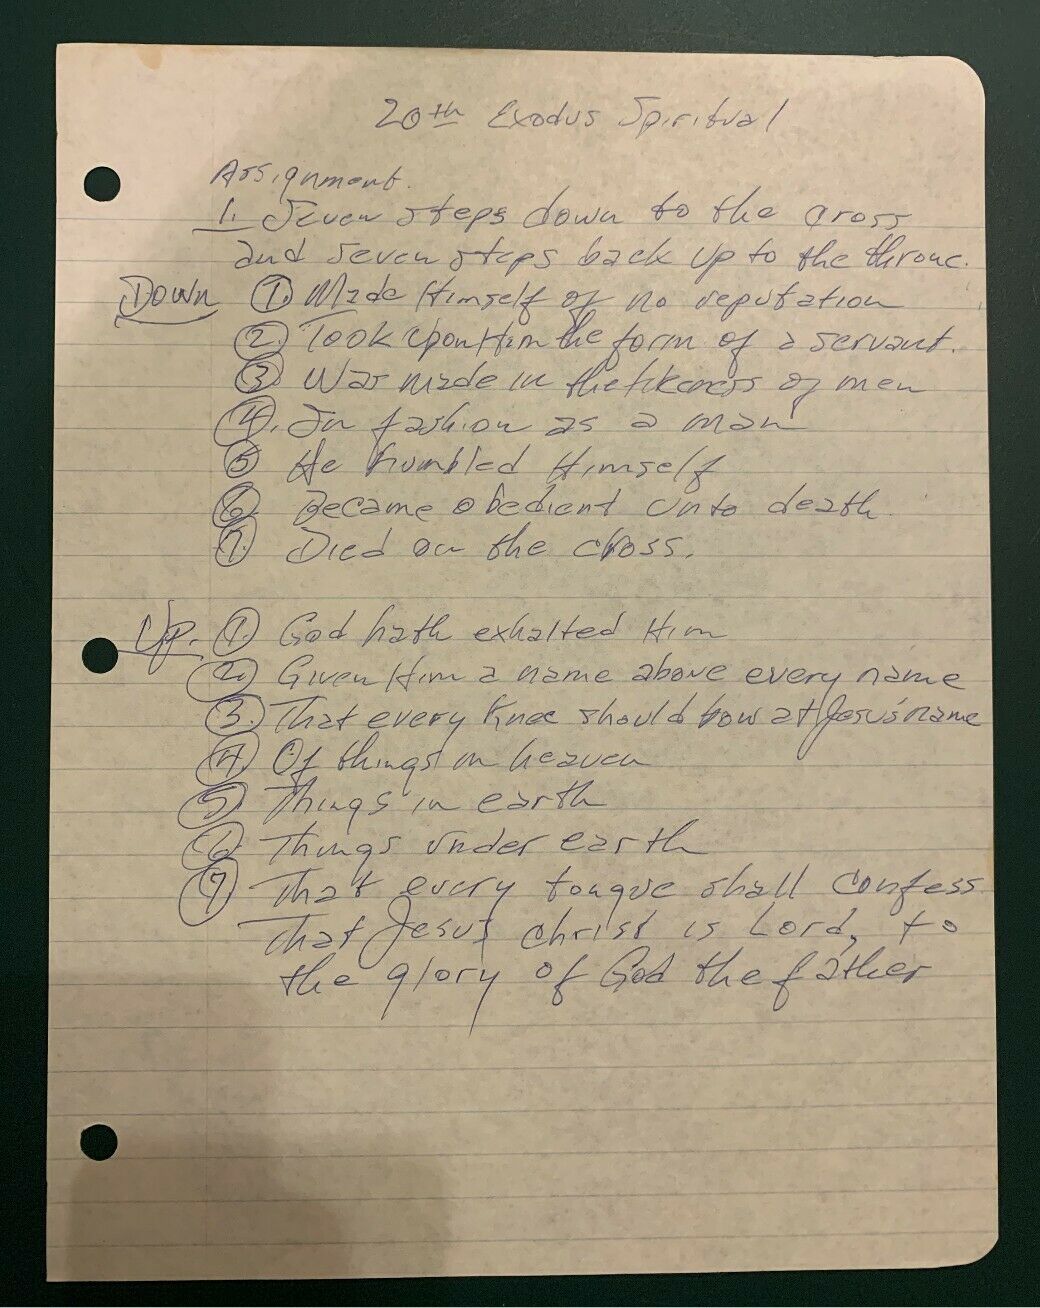 20th Exodus Spiritual
Assignment.
1. Seven steps down to the cross
and seven steps back up to the throne.
Down 1. Made Himself of no reputation
2. Took upon Him the form of a servant.
3. Was made in the likeness of men
4. In fashion as a man
5 He humbled Himself
6. Became obedient unto death.
7. Died on the cross.
Up. 1. God hath exhalted Him
2. Given Him a name above every name
3. That every knee should bow at Jesus' name
4 Of things in heaven
5. Things in earth
6. Things under earth
7 That every tongue shall confess
That Jesus christ is Lord, to
the glory of God the father